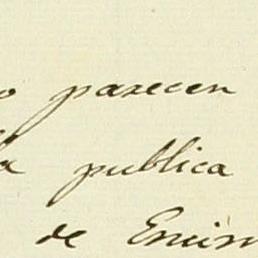 o parecen
la publica
de Encin